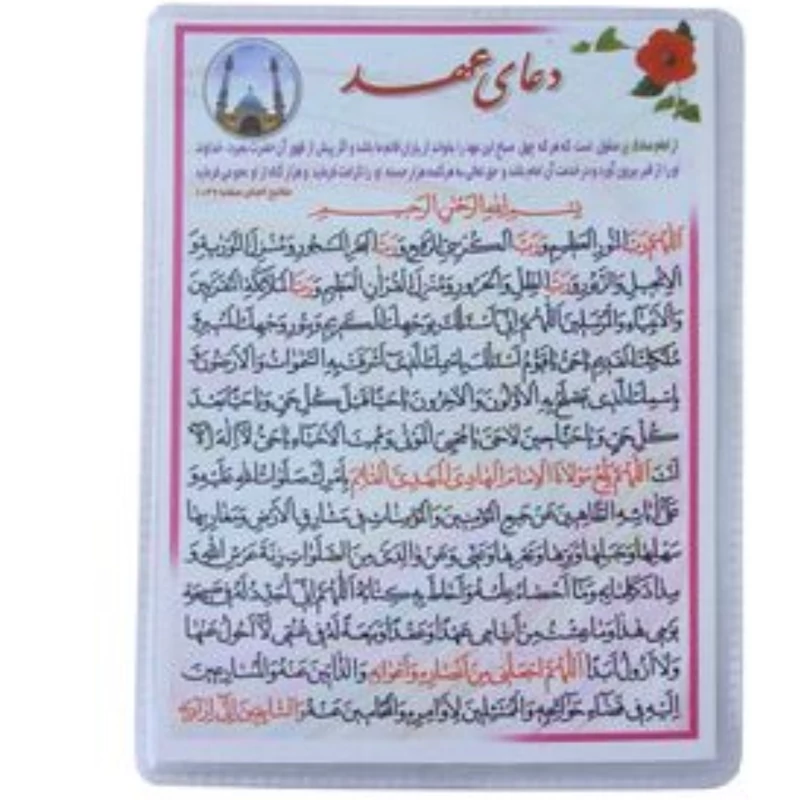 دعای عهد
از امام صادق منقول است که هر که چهل صباح این عهد را بخواند از یاران قائم ما باشد و اگر پیش از ظهور آن حضرت بمیرد، خداوند
او را از قبر بیرون آورد و در خدمت آن امام باشد و حق تعالی به هر کلمه هزار حسنه او را کرامت فرماید و هزار گناه از او محو می فرماید
بِسْمِ اللهِ الرَّحْمنِ الرَّحيمِ
اَللّهُمَّ رَبَّ النُّورِ الْعَظيمِ وَ رَبَّ الْكُرْسِيِّ الرَّفيعِ وَ رَبَّ الْبَحْرِ الْمَسْجُورِ وَ مُنْزِلَ التَّوْريةِ وَ
الْاِنْجيلِ وَالزَّبُورِ وَ رَبَّ الظِّلِّ وَالْحَرُورِ وَ مُنْزِلَ الْقُرْآنِ الْعَظيمِ وَ رَبَّ الْمَلائِكَةِ الْمُقَرَّبينَ
وَالْاَنْبِياءِ وَالْمُرْسَلينَ اَللّهُمَّ اِنّى اَسْئَلُكَ بِوَجْهِكَ الْكَريمِ وَ بِنُورِ وَجْهِكَ الْمُنيرِ وَ
مُلْكِكَ الْقَديمِ يا حَىُّ يا قَيُّومُ اَسْئَلُكَ بِاسْمِكَ الَّذى اَشْرَقَتْ بِهِ السَّمواتُ وَالْاَرَضُونَ وَ
بِاسْمِكَ الَّذى يَصْلَحُ بِهِ الْاَوَّلُونَ وَالْاخِرُونَ يا حَيًّا قَبْلَ كُلِّ حَىٍّ وَ يا حَيًّا بَعْدَ
كُلِّ حَىٍّ وَ يا حَيًّا حينَ لا حَىَّ يا مُحْيِىَ الْمَوْتى وَ مُميتَ الْاَحْياءِ يا حَىُّ لا اِلهَ اِلاّ
اَنْتَ اَللّهُمَّ بَلِّغْ مَوْلانَا الْاِمامَ الْهادِىَ الْمَهْدِىَّ الْقائِمَ بِاَمْرِكَ صَلَواتُ اللهِ عَلَيْهِ وَ
عَلى آبائِهِ الطّاهِرينَ عَنْ جَميعِ الْمُؤْمِنينَ وَالْمُؤْمِناتِ فى مَشارِقِ الْاَرْضِ وَ مَغارِبِها
سَهْلِها وَ جَبَلِها وَ بَرِّها وَ بَحْرِها وَ عَنّى وَ عَنْ والِدَىَّ مِنَ الصَّلَواتِ زِنَةَ عَرْشِ اللهِ وَ
مِدادَ كَلِماتِهِ وَ ما اَحْصاهُ عِلْمُهُ وَ اَحاطَ بِهِ كِتابُهُ اَللّهُمَّ اِنّى اُجَدِّدُ لَهُ فى صَبيحَةِ
يَوْمى هذا وَ ما عِشْتُ مِنْ اَيّامى عَهْدًا وَ عَقْدًا وَ بَيْعَةً لَهُ فى عُنُقى لا اَحُولُ عَنْها
وَلا اَزُولُ اَبَدًا اَللّهُمَّ اجْعَلْنى مِنْ اَنْصارِهِ وَ اَعْوانِهِ وَالذّابّينَ عَنْهُ وَالْمُسارِعينَ
اِلَيْهِ فى قَضاءِ حَوائِجِهِ وَالْمُمْتَثِلينَ لِاَوامِرِهِ وَالْمُحامينَ عَنْهُ وَالسّابِقينَ اِلى اِرادَتِهِ